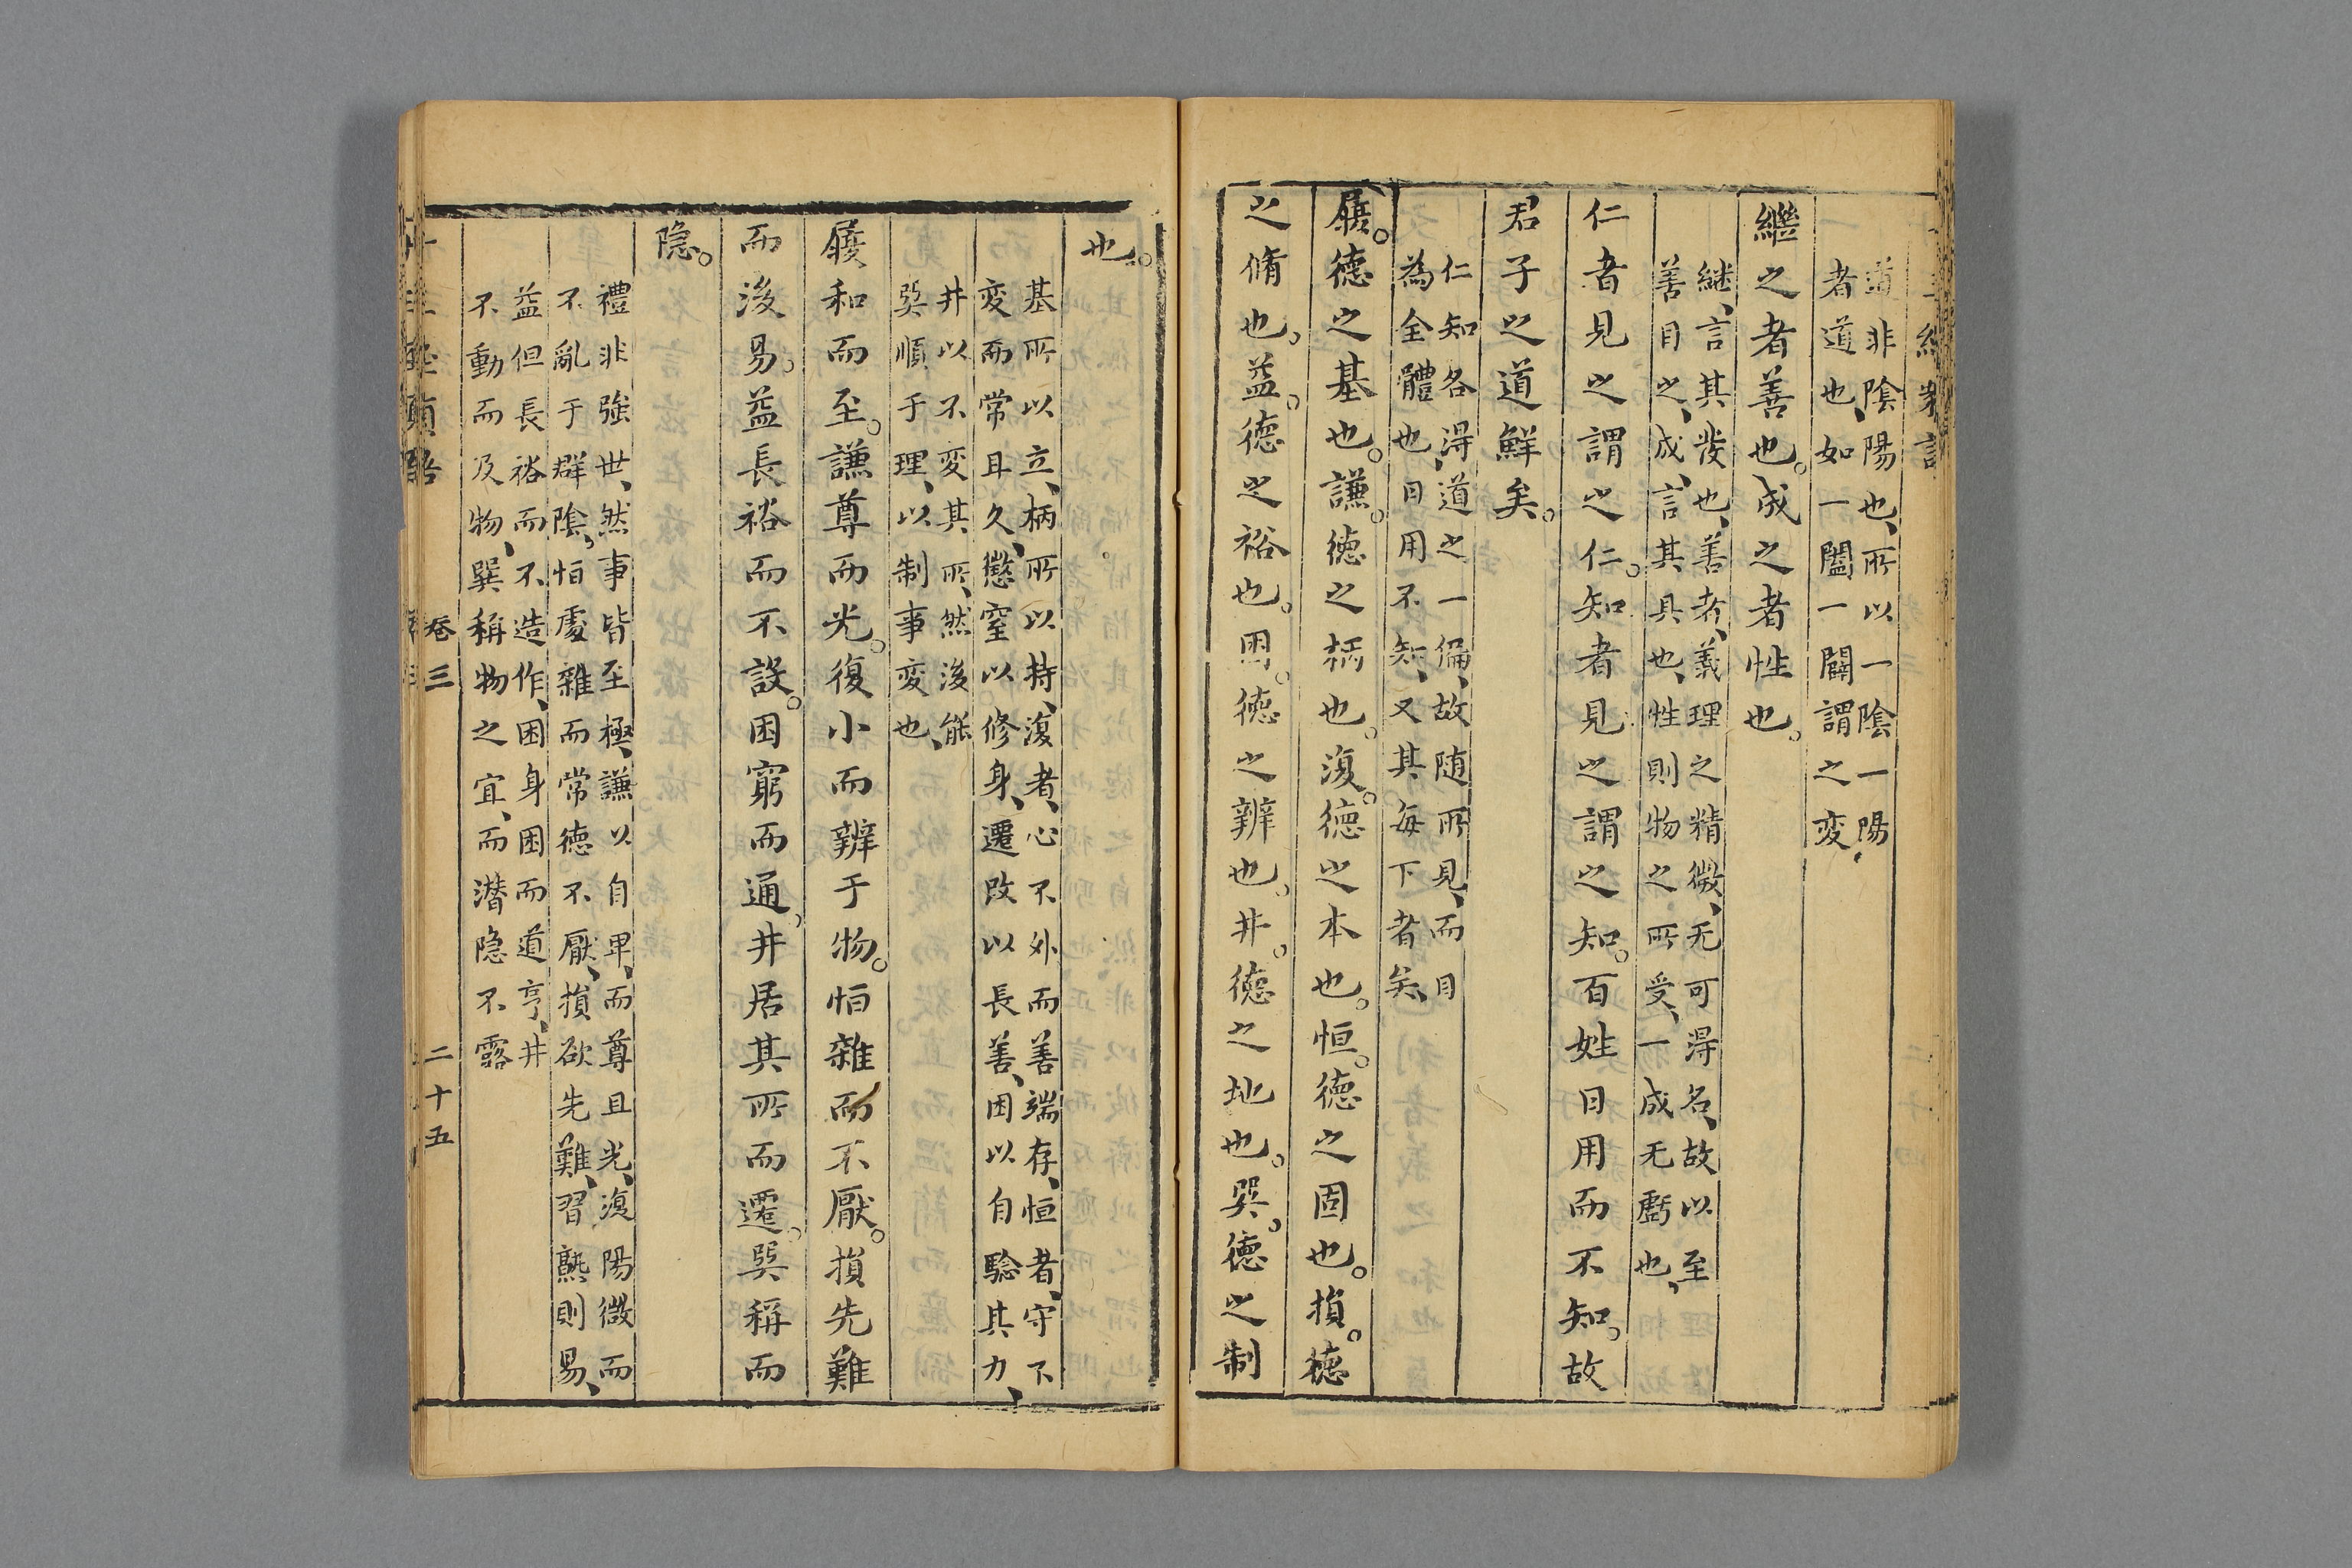 道非陰陽也、所以一陰一陽、
者道也、如一闔一闢謂之変
繼之者善也。成之者性也。
継、言其發也、善者、義理之精微、无可淂名、故以至
善目之、成、言其具也、性則物之所受、一成无虧也、
仁者見之謂之仁。知者見之謂之知。百姓日用而不知。故
君子之道鮮矣。
仁知各淂道之一偏、故随所見、而目
為全體也、日用不知、又其每下者矣、
履。德之基也。謙。德之柄也。復。德之本也。恒。德之固也。損。德
之脩也。益。德之裕也。困。德之辨也。井。德之地也。巽。德之制
也。
基所以立、柄所以持、復者、心不外而善端存、恒者、守不
変而常且久、懲窒以修身、遷改以長善、困以自驗其力、
井以不変其所、然後能
巽順于理、以制事変也、
履和而至。謙尊而光。復小而辨于物。恒雜而不厭。損先難
而後易。益長裕而不設。困窮而通。井居其所而遷。巽稱而
隐。
禮非強世、然事皆至極、謙以自卑、而尊且光、復陽微而
不亂于群陰、恒處雜而常德不厭、損欲先難、習熟則易、
益但長裕而不造作、困身困而道亨、井
不動而及物、巽稱物之宜、而潜隐不露
卷三
二十五